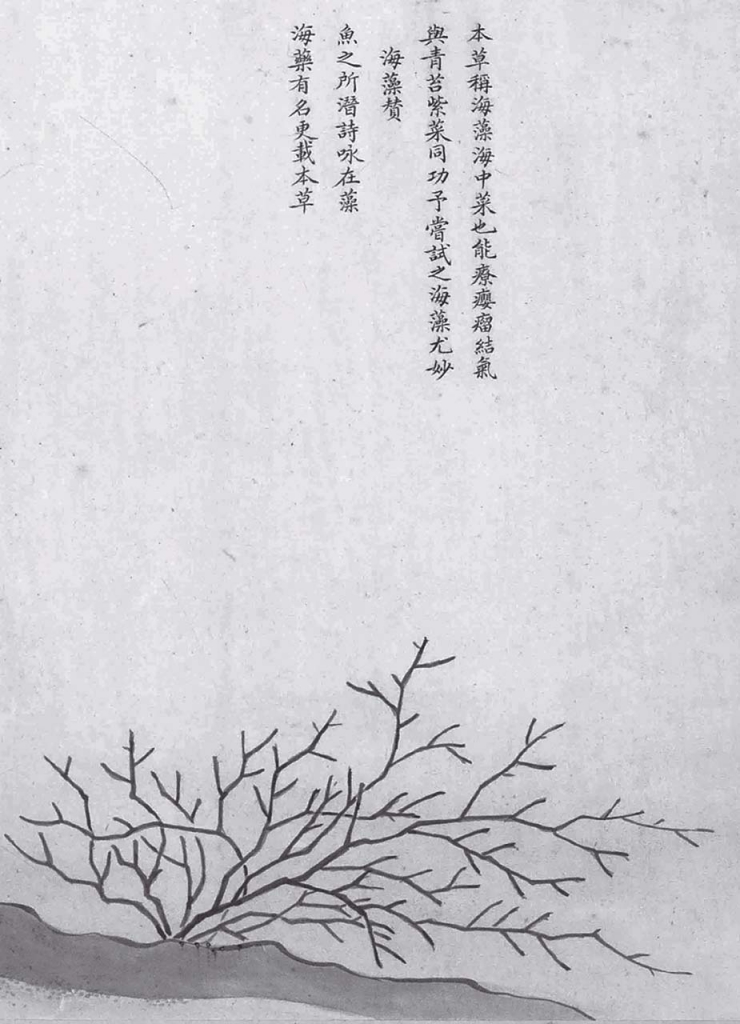 本草稱海藻海中菜也能療癭瘤結氣
與青苔紫菜同功予嘗試之海藻尤妙
海藻賛
魚之所潛詩咏在藻
海藥有名更載本草